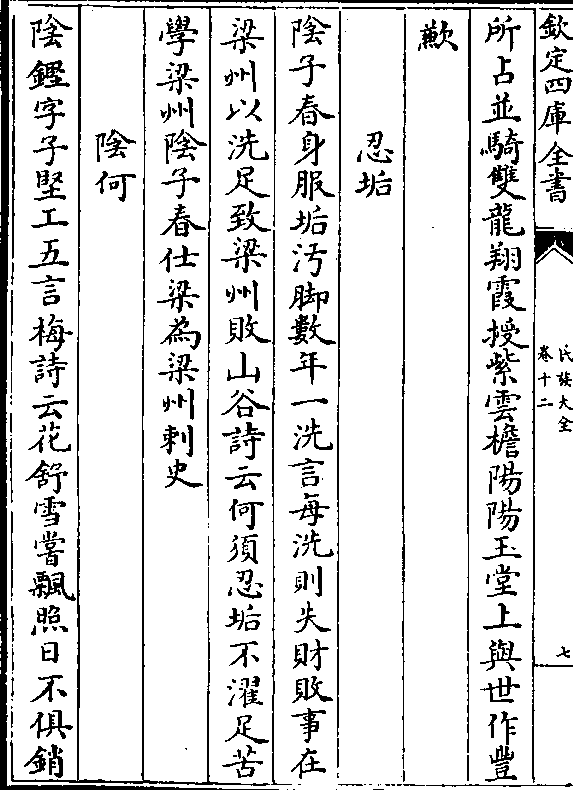 欽定四庫全書
氏族大全
卷十二
七
所占並騎雙龍翔霞授紫雲檐陽陽玉堂上與世作豐
歉
忍垢
陰子春身服垢汚脚數年一洗言每洗則失財敗事在
梁州以洗足致梁州敗山谷詩云何須忍垢不濯足苦
學梁州陰子春仕梁為梁州刺史
陰何
陰鏗字子堅工五言梅詩云花舒雪嘗飄照日不俱銷